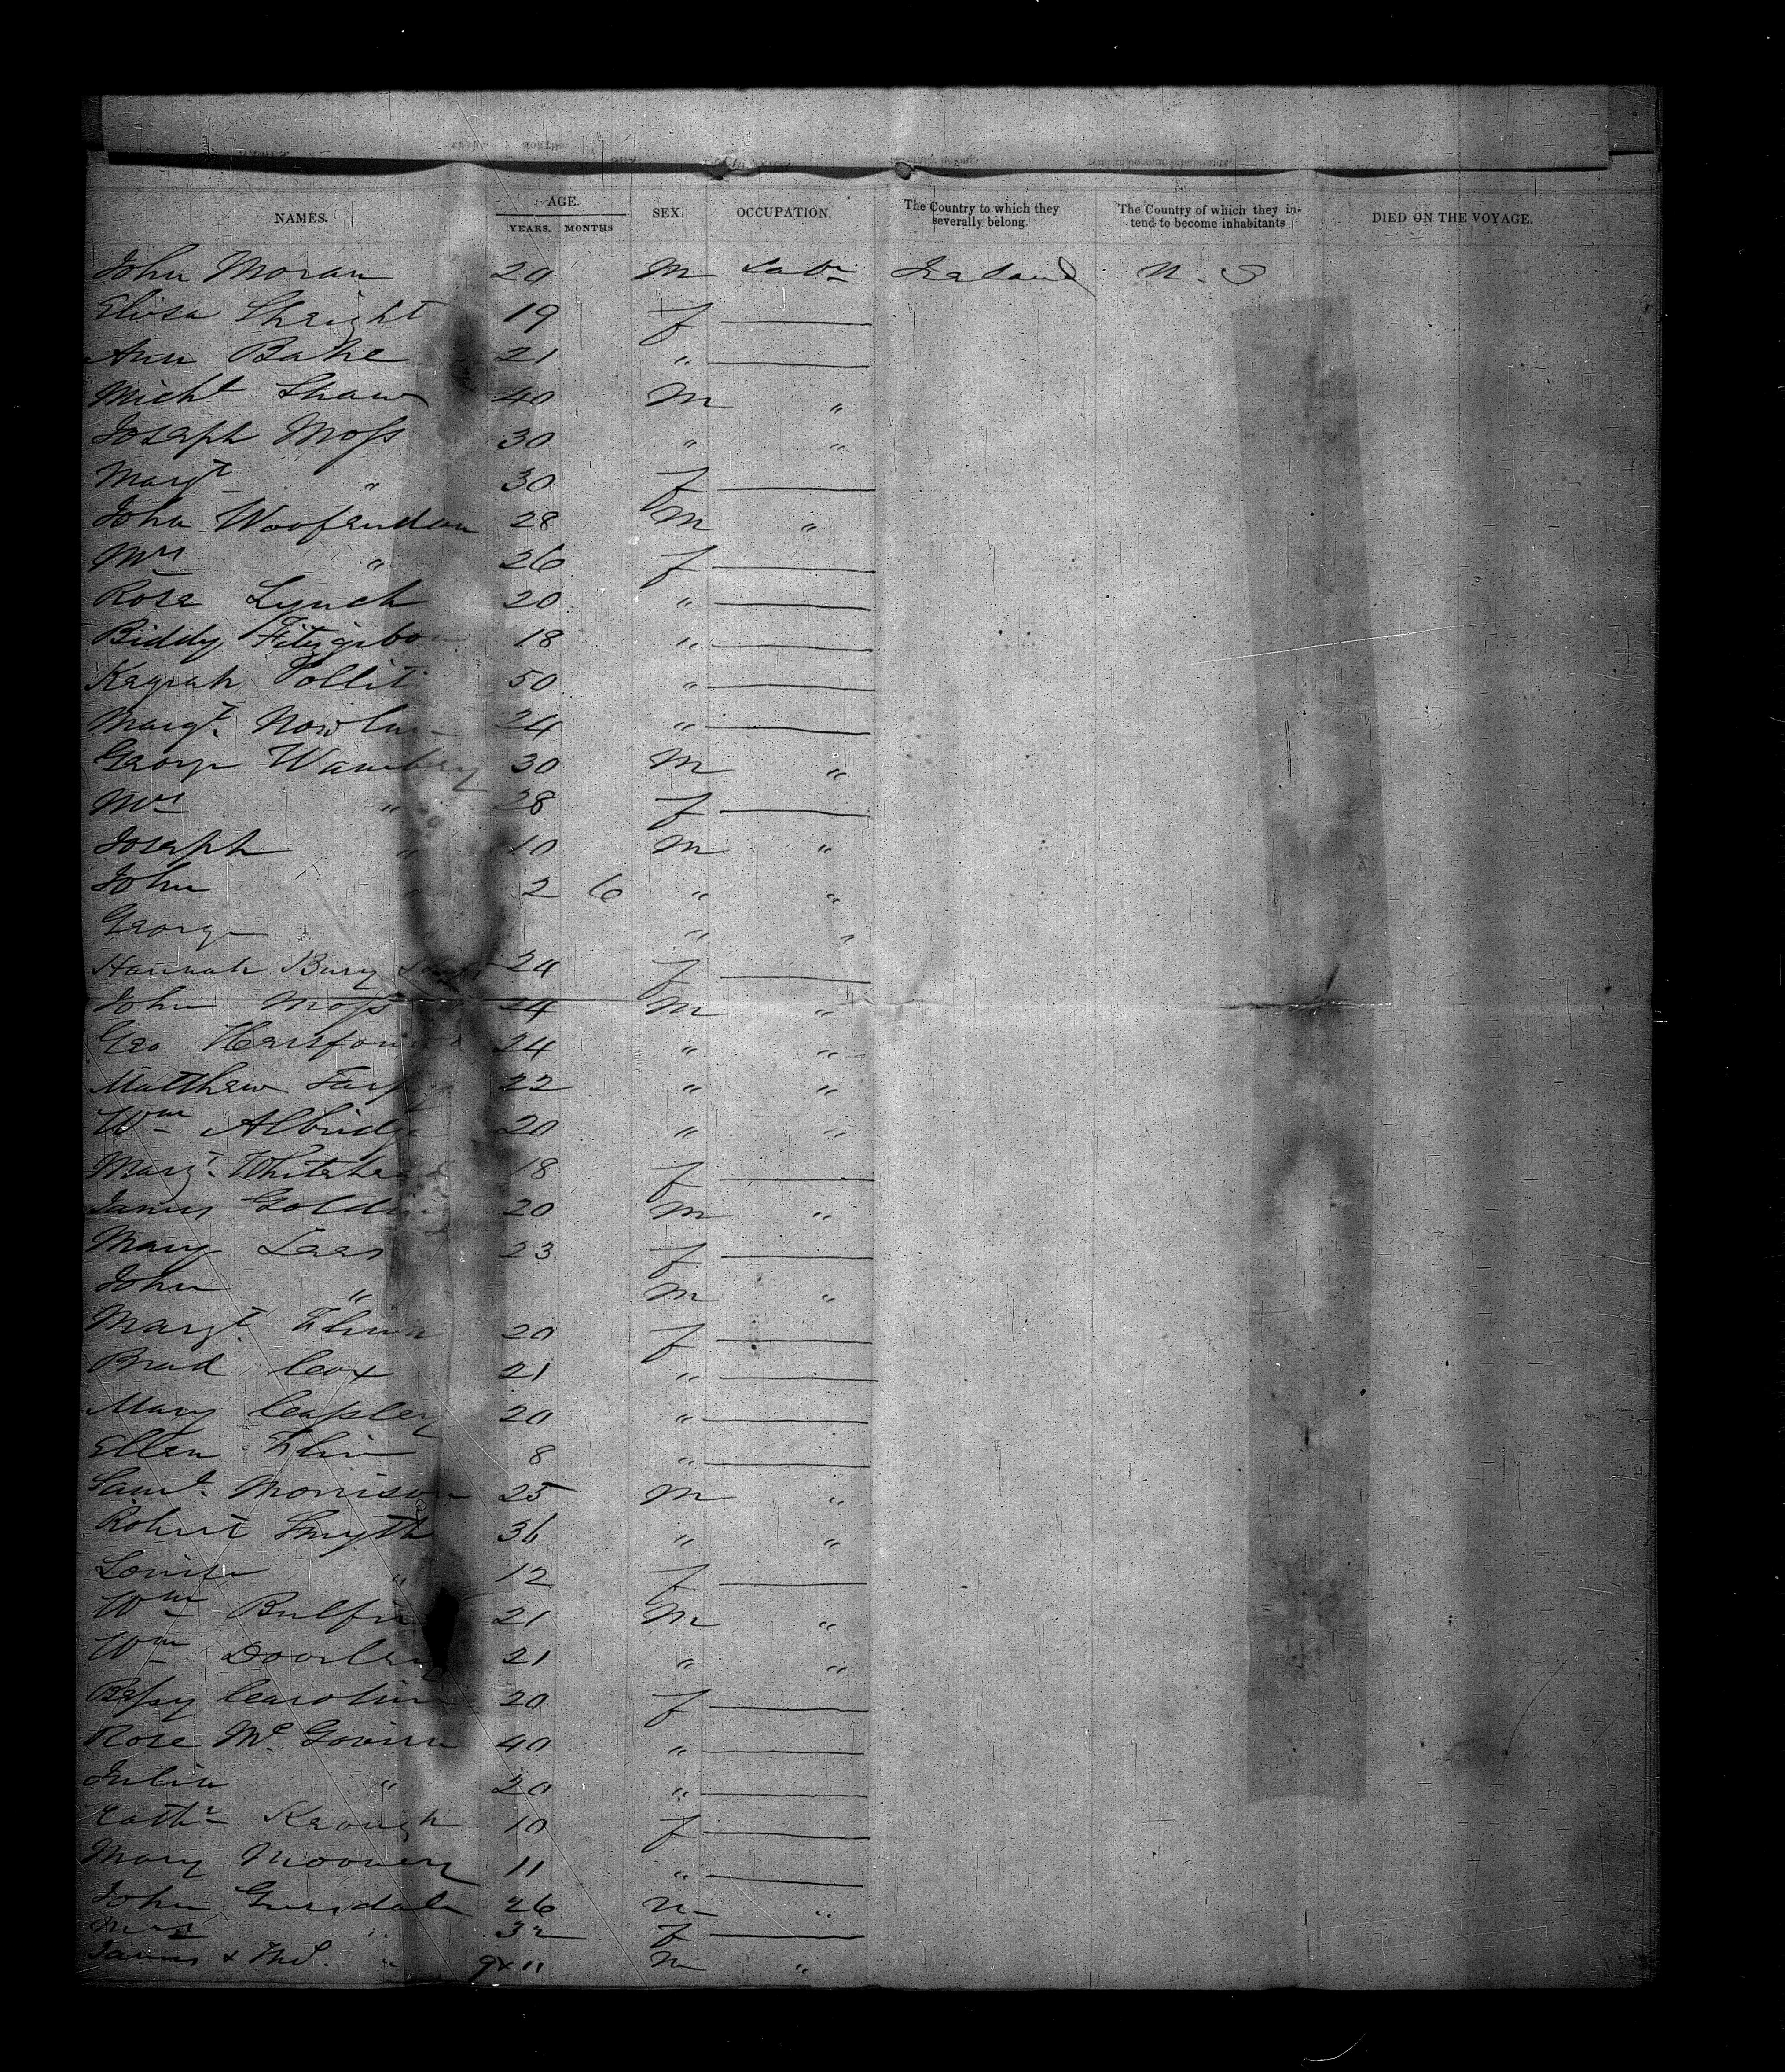 NAMES. AGE. YEARS. MONTHS SEX. OCCUPATION. The Country to which they severally belong. The Country of which they intend to become inhabitants DIED ON THE VOYAGE.
John Moran 20 M Labr Ireland U. S
Eliza 19 f
Ann Bake 21 "
Michl Shaw 40 M "
Joseph Moss 30 " "
Margt " 30 f
John Woofendon 28 M "
Mrs " 26 f
Rose Lynch 20 "
Biddy Fitzgibbon 18 "
Pollit 50 "
Margt. Nowlan 24 "
George 30 M "
Mrs " 28 f
Joseph " 10 M "
John " 2 6 " "
George " " "
Hannah Bury 24 f
John Moss 24 M "
Geo 24 " "
Matthew 22 " "
Wm Albridge 20 " "
Margt. Whitehead 18 f
James 20 M "
Mary Lees 23 f
John " M "
Margt. Flinn 20 f
Cox 21 "
Mary 20 "
Ellen Flinn 8 "
Saml. Morrison 25 M "
Robert Smyth 36 " "
Louisa " 12 f
Wm 21 M "
Wm 21 " "
Bessy 20 f
Rose Mc Govern 40 "
Julia " 20 "
Cathe Keough 10 f
Mary Mooney 11 "
John 26 M "
Mrs " 32 f
James & " 9 & 11 M "